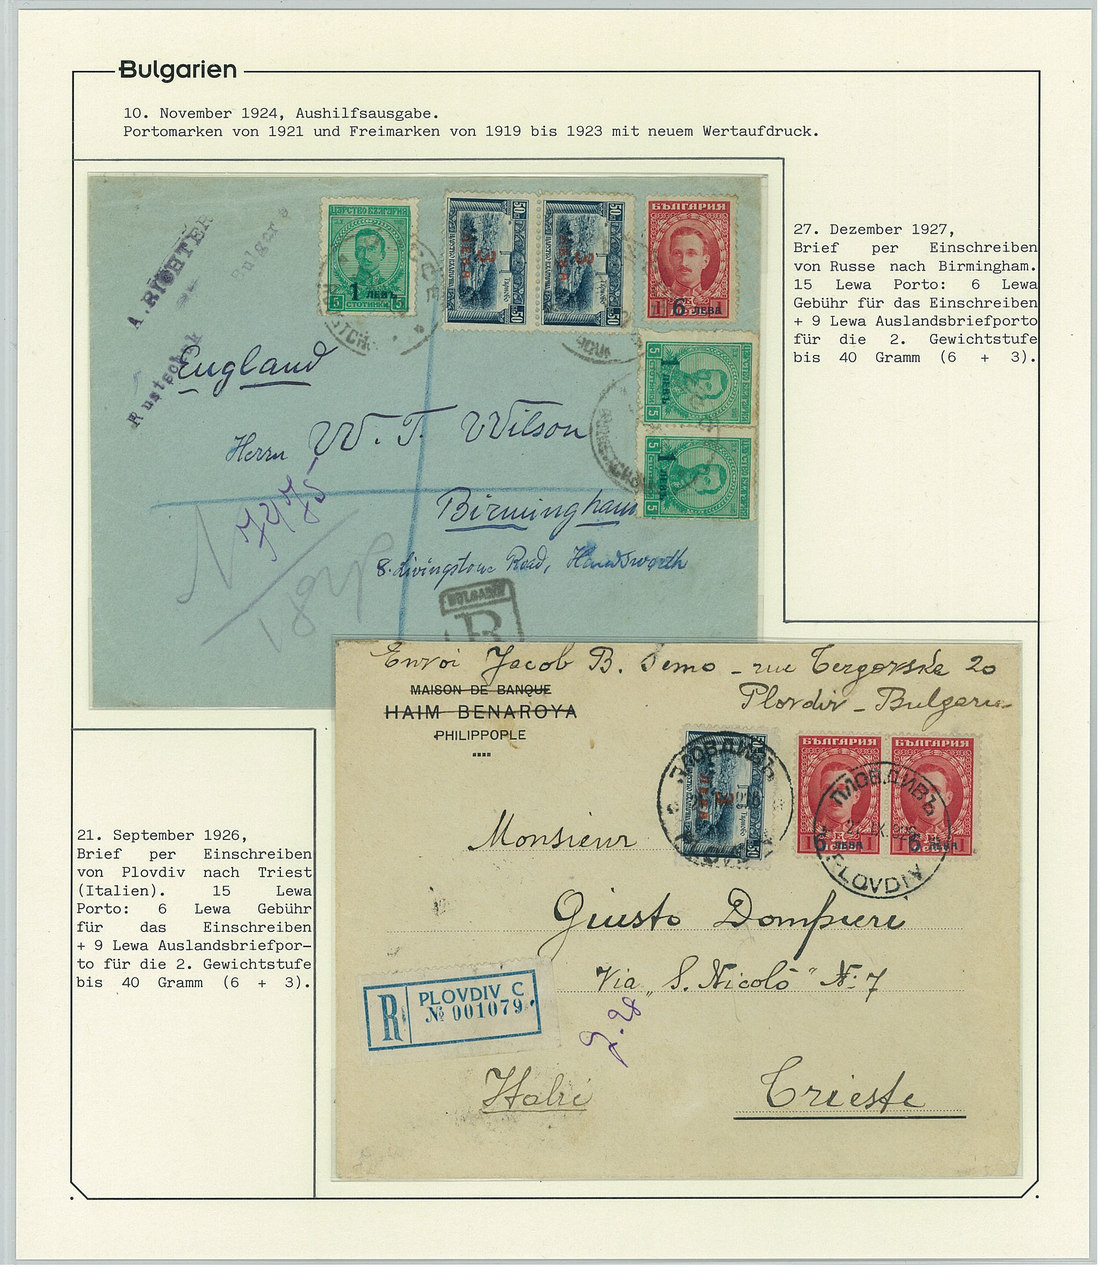 Bulgarien
10. November 1924, Aushilfsausgabe.
Portomarken von 1921 und Freimarken von 1919 bis 1923 mit neuem Wertaufdruck.
27. Dezember 1927,
Brief per Einschreiben
von Russe nach Birmingham.
15 Lewa Porto: 6 Lewa
Gebühr für das Einschreiben
+ 9 Lewa Auslandsbriefporto
für die 2. Gewichtstufe
bis 40 Gramm (6 + 3).
A. RICHTER
Rustschuk
ЦАРСТВО БЪЛГАРИЯ
1 ЛЕВЪ
5 5
СТОТИНКИ
50 50
3
ЛЕВА
50 50
3
ЛЕВА
БЪЛГАРИЯ
1 6 ЛЕВА 1
5 1 ЛЕВЪ 5
5 1 ЛЕВЪ 5
England
Herrn W. T. Wilson
Birmingham
8. Livingstone Road, Handsworth
BULGARIE
R
Envoi Jacob B. Semo - rue Tergovska 20
Plovdiv - Bulgarie
MAISON DE BANQUE
HAIM BENAROYA
PHILIPPOPLE
50
3
ЛЕВА
50
ПЛОВДИВЪ
БЪЛГАРИЯ БЪЛГАРИЯ
1 6 ЛЕВА 1 6 ЛЕВА 1
ПЛОВДИВЪ
PLOVDIV
Monsieur
Giusto Dompieri
Via „S. Nicolò" №: 7
R PLOVDIV C.
№ 001079
Italie
Trieste
21. September 1926,
Brief per Einschreiben
von Plovdiv nach Triest
(Italien). 15 Lewa
Porto: 6 Lewa Gebühr
für das Einschreiben
+ 9 Lewa Auslandsbriefpor-
to für die 2. Gewichtstufe
bis 40 Gramm (6 + 3).